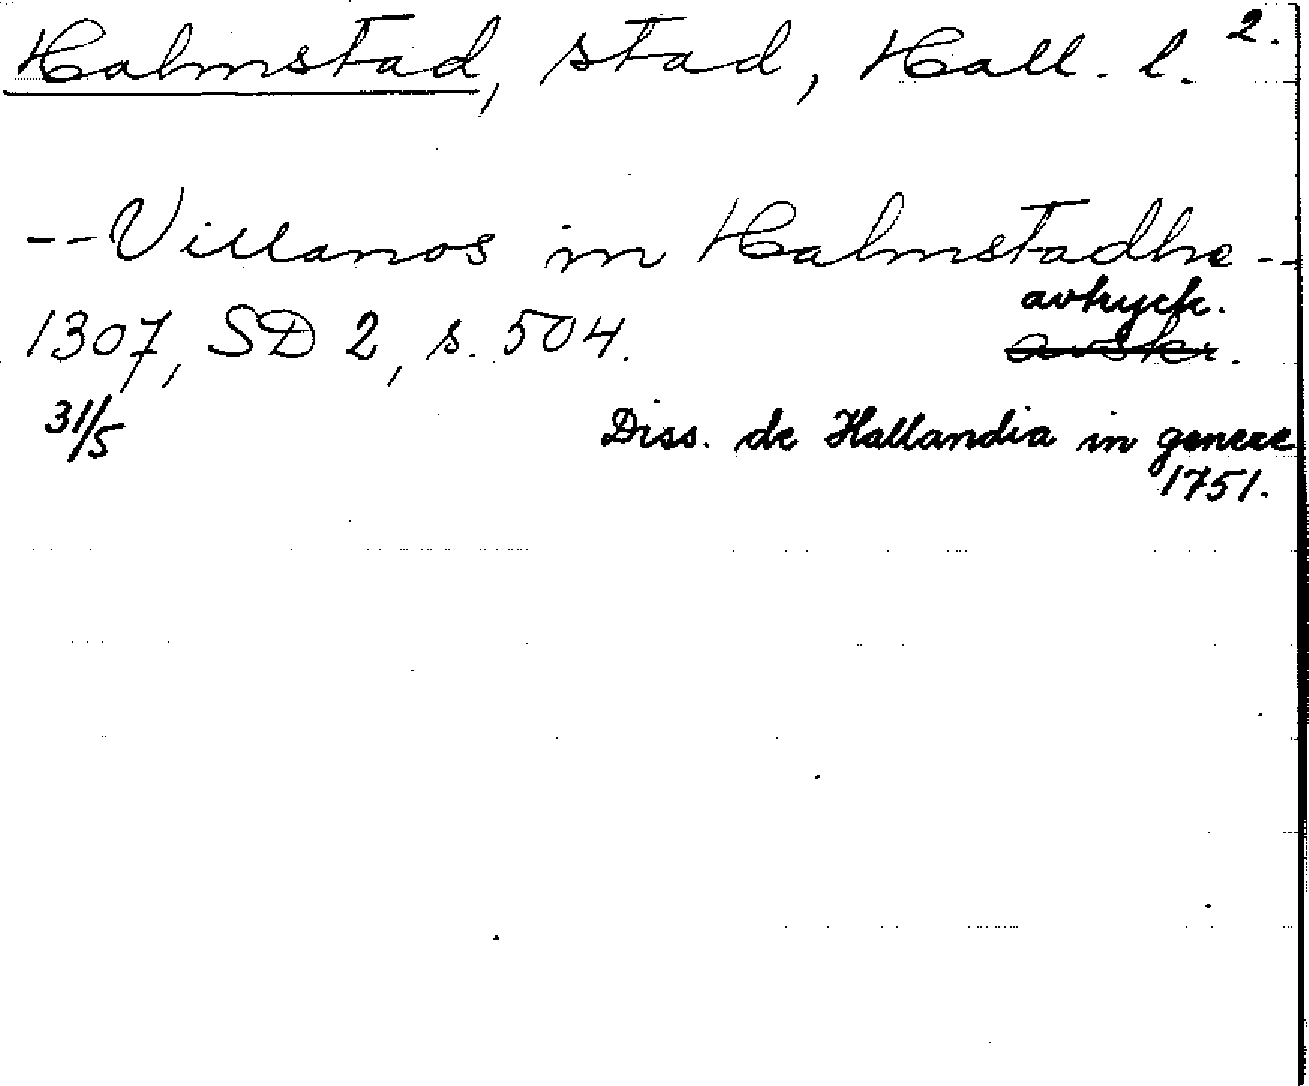 Halmstad, stad, Hall. l. 2.
--Villanos in Halmstadhe--
avtryck.
1307, SD 2, s. 504. avskr.
31/5 Diss. de Hallandia in genere
1751.